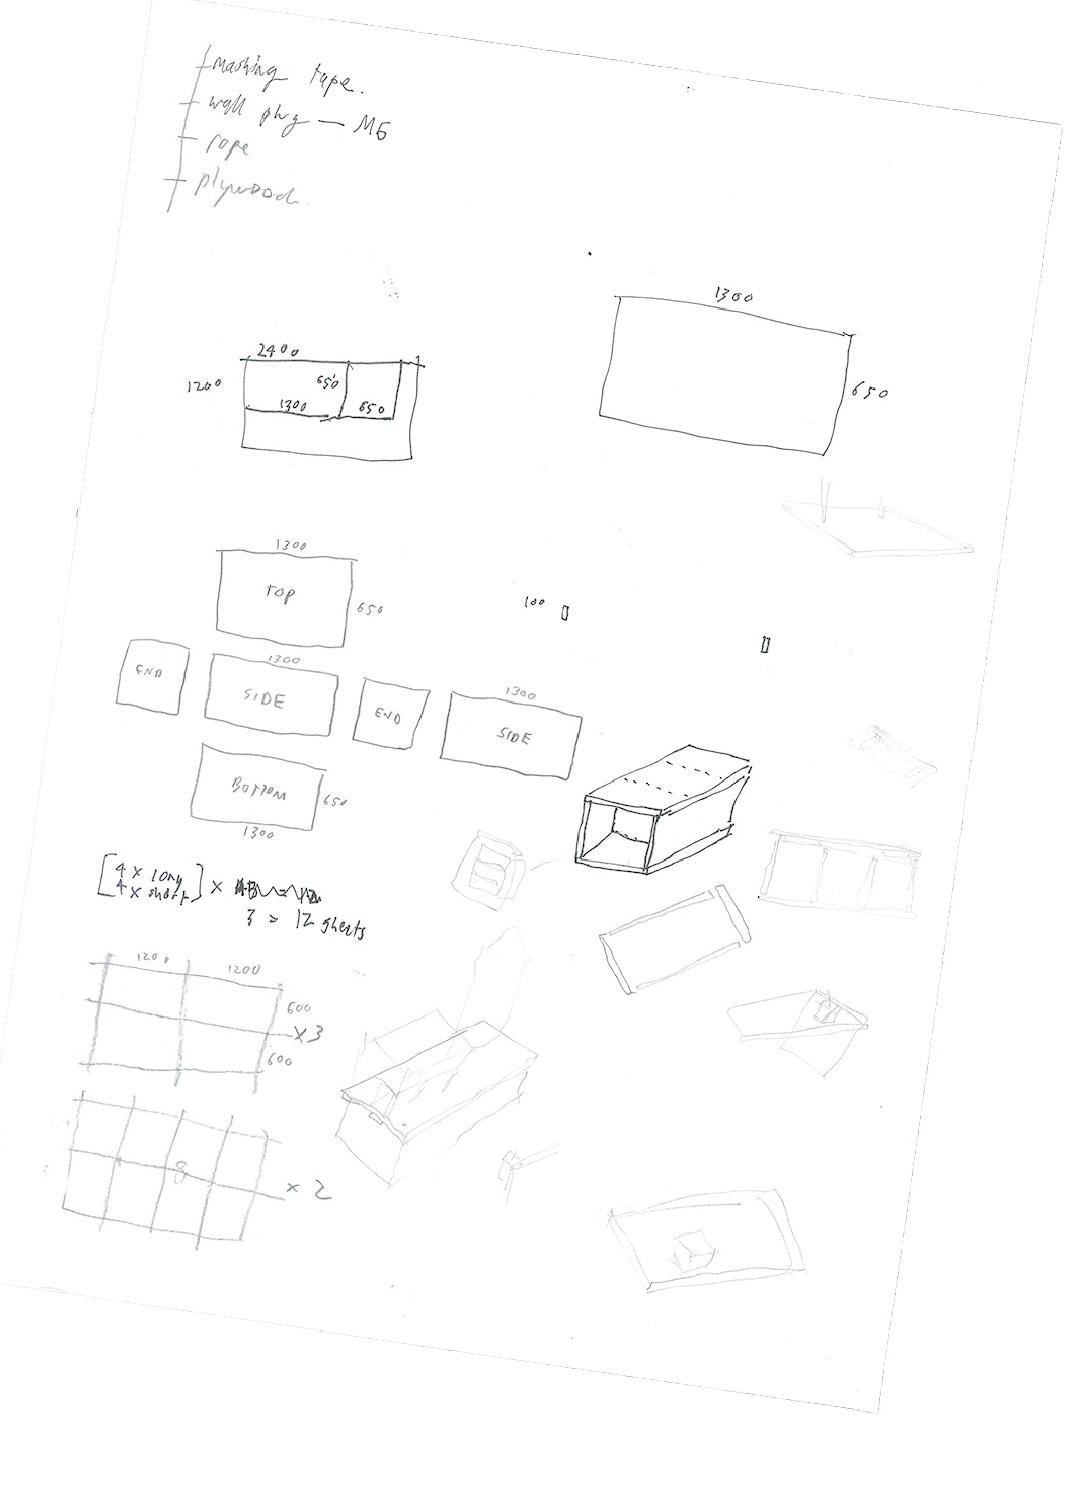 masking tape.
wall plug — M6
rope
plywood.
1300
650
2400
1200
650
1300
650
1300
TOP
650
100
END
1300
SIDE
END
1300
SIDE
BOTTOM
650
1300
[4 x long
4 x short] x
3 = 12 sheets
1200
1200
600
x3
600
8
x 2